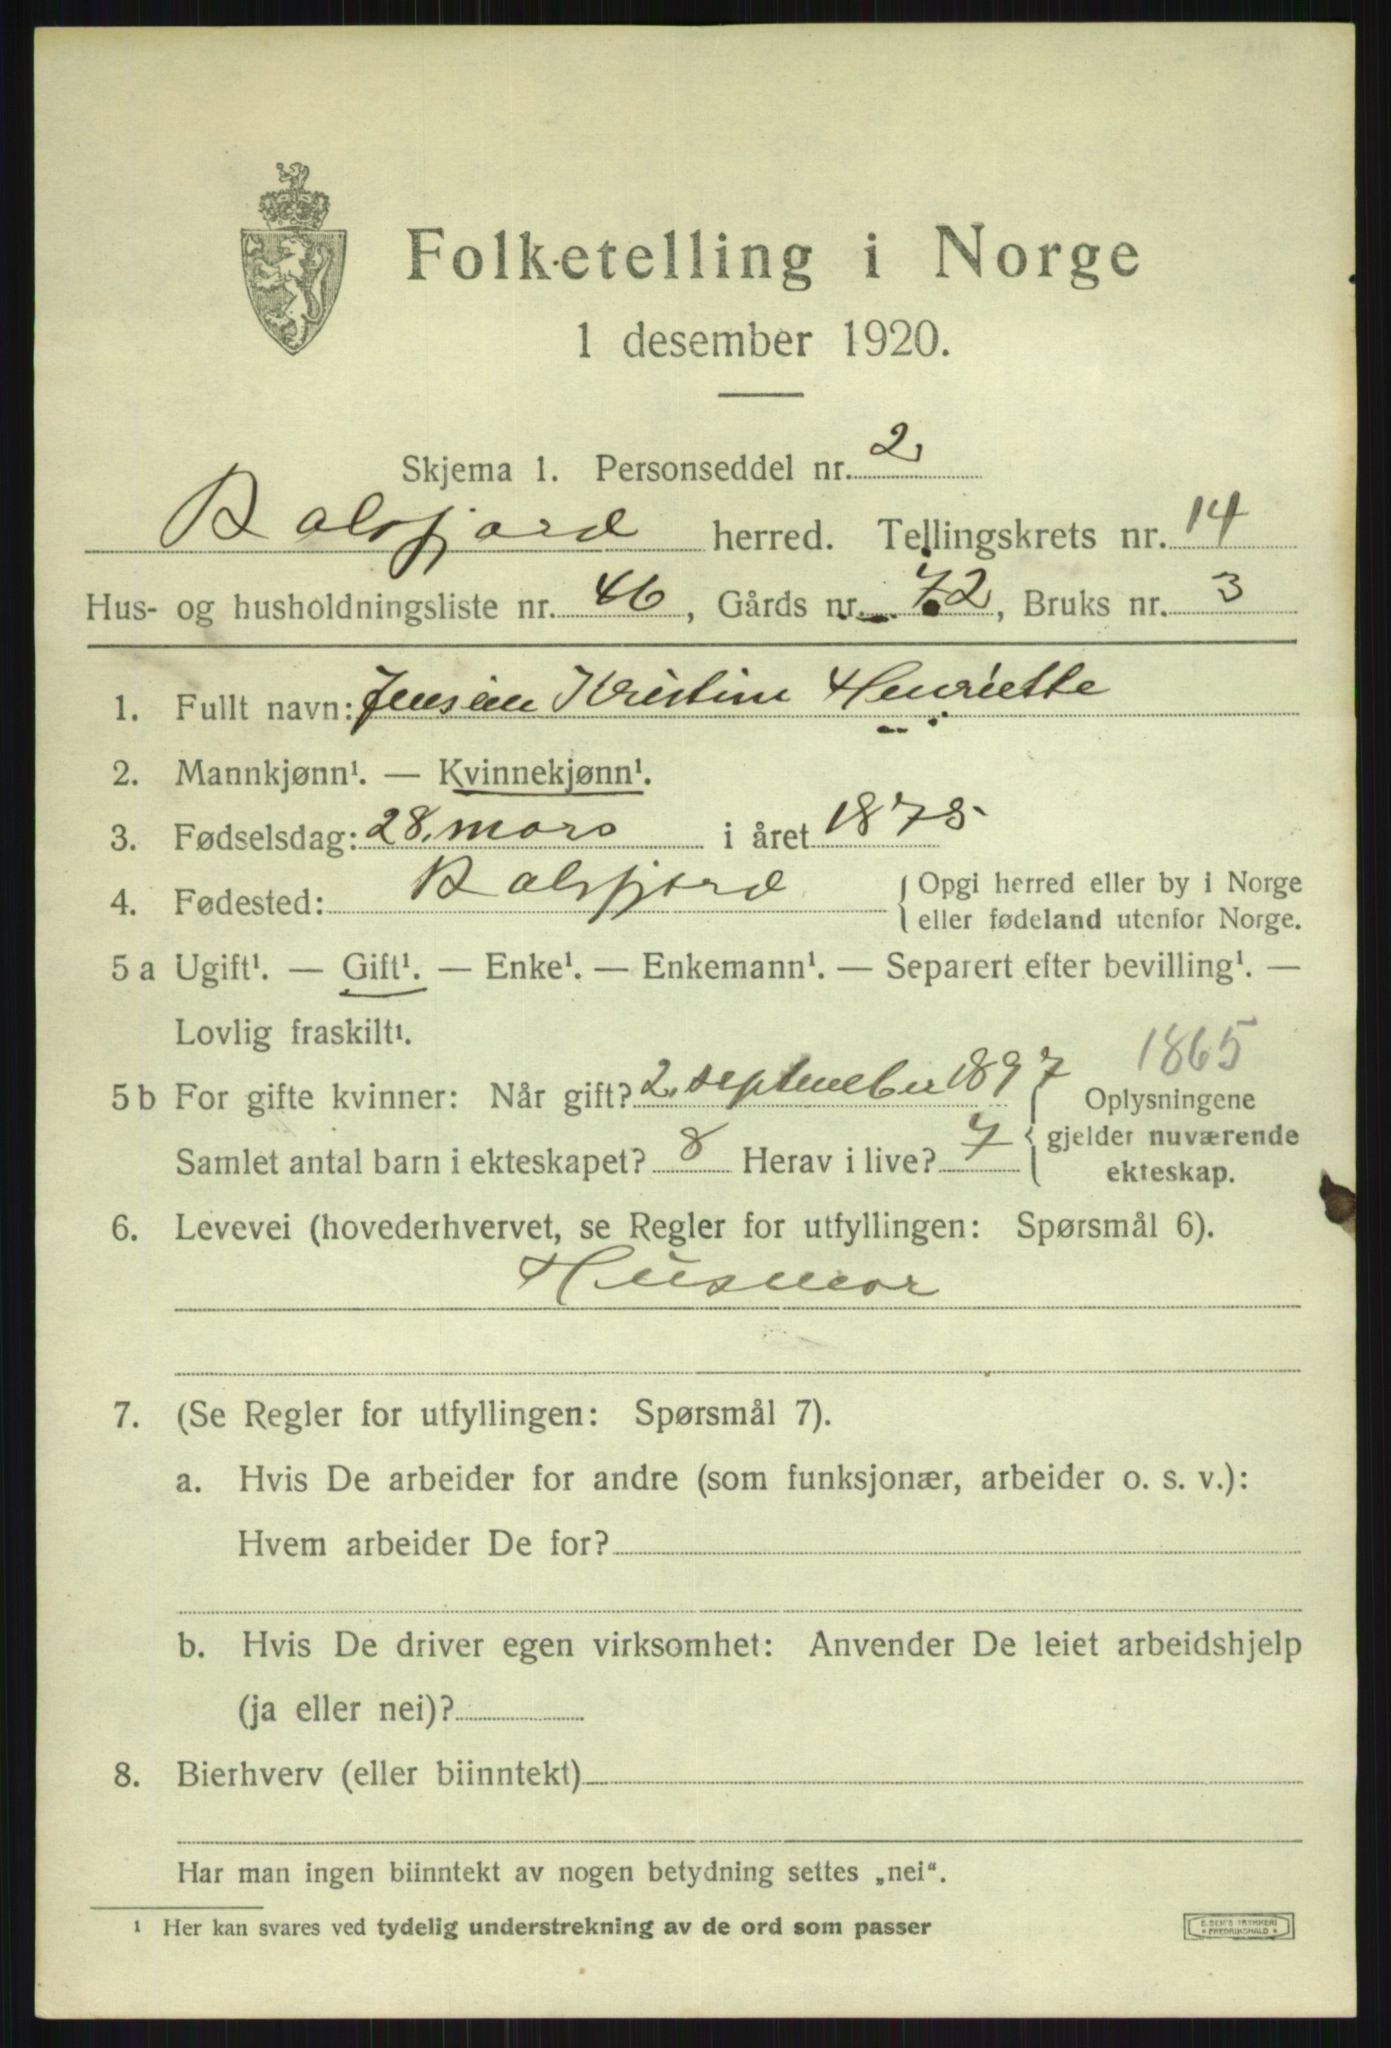 Folketelling i Norge
1 desember 1920.
Skjema 1. Personseddel nr. 2
Balsfjord herred. Tellingskrets nr. 14
Hus- og husholdningsliste nr. 46, Gårds nr. 72, Bruks nr. 3
1. Fullt navn: Jensen Kristine Henriette
2. Mannkjønn¹. — Kvinnekjønn¹.
3. Fødselsdag: 28. mars i året 1875
4. Fødested: Balsfjord { Opgi herred eller by i Norge
eller fødeland utenfor Norge.
5 a Ugift¹. — Gift¹. — Enke¹. — Enkemann¹. — Separert efter bevilling¹. —
Lovlig fraskilt¹.
1865
5 b For gifte kvinner: Når gift? 2. september 1897 { Oplysningene
Samlet antal barn i ekteskapet? 8 Herav i live? 7 gjelder nuværende
ekteskap.
6. Levevei (hovederhvervet, se Regler for utfyllingen: Spørsmål 6).
Husmor
7. (Se Regler for utfyllingen: Spørsmål 7).
a. Hvis De arbeider for andre (som funksjonær, arbeider o. s. v.):
Hvem arbeider De for?
b. Hvis De driver egen virksomhet: Anvender De leiet arbeidshjelp
(ja eller nei)?
8. Bierhverv (eller biinntekt)
Har man ingen biinntekt av nogen betydning settes „nei“.
¹ Her kan svares ved tydelig understrekning av de ord som passer
E. SEM'S TRYKKERI
FREDRIKSHALD